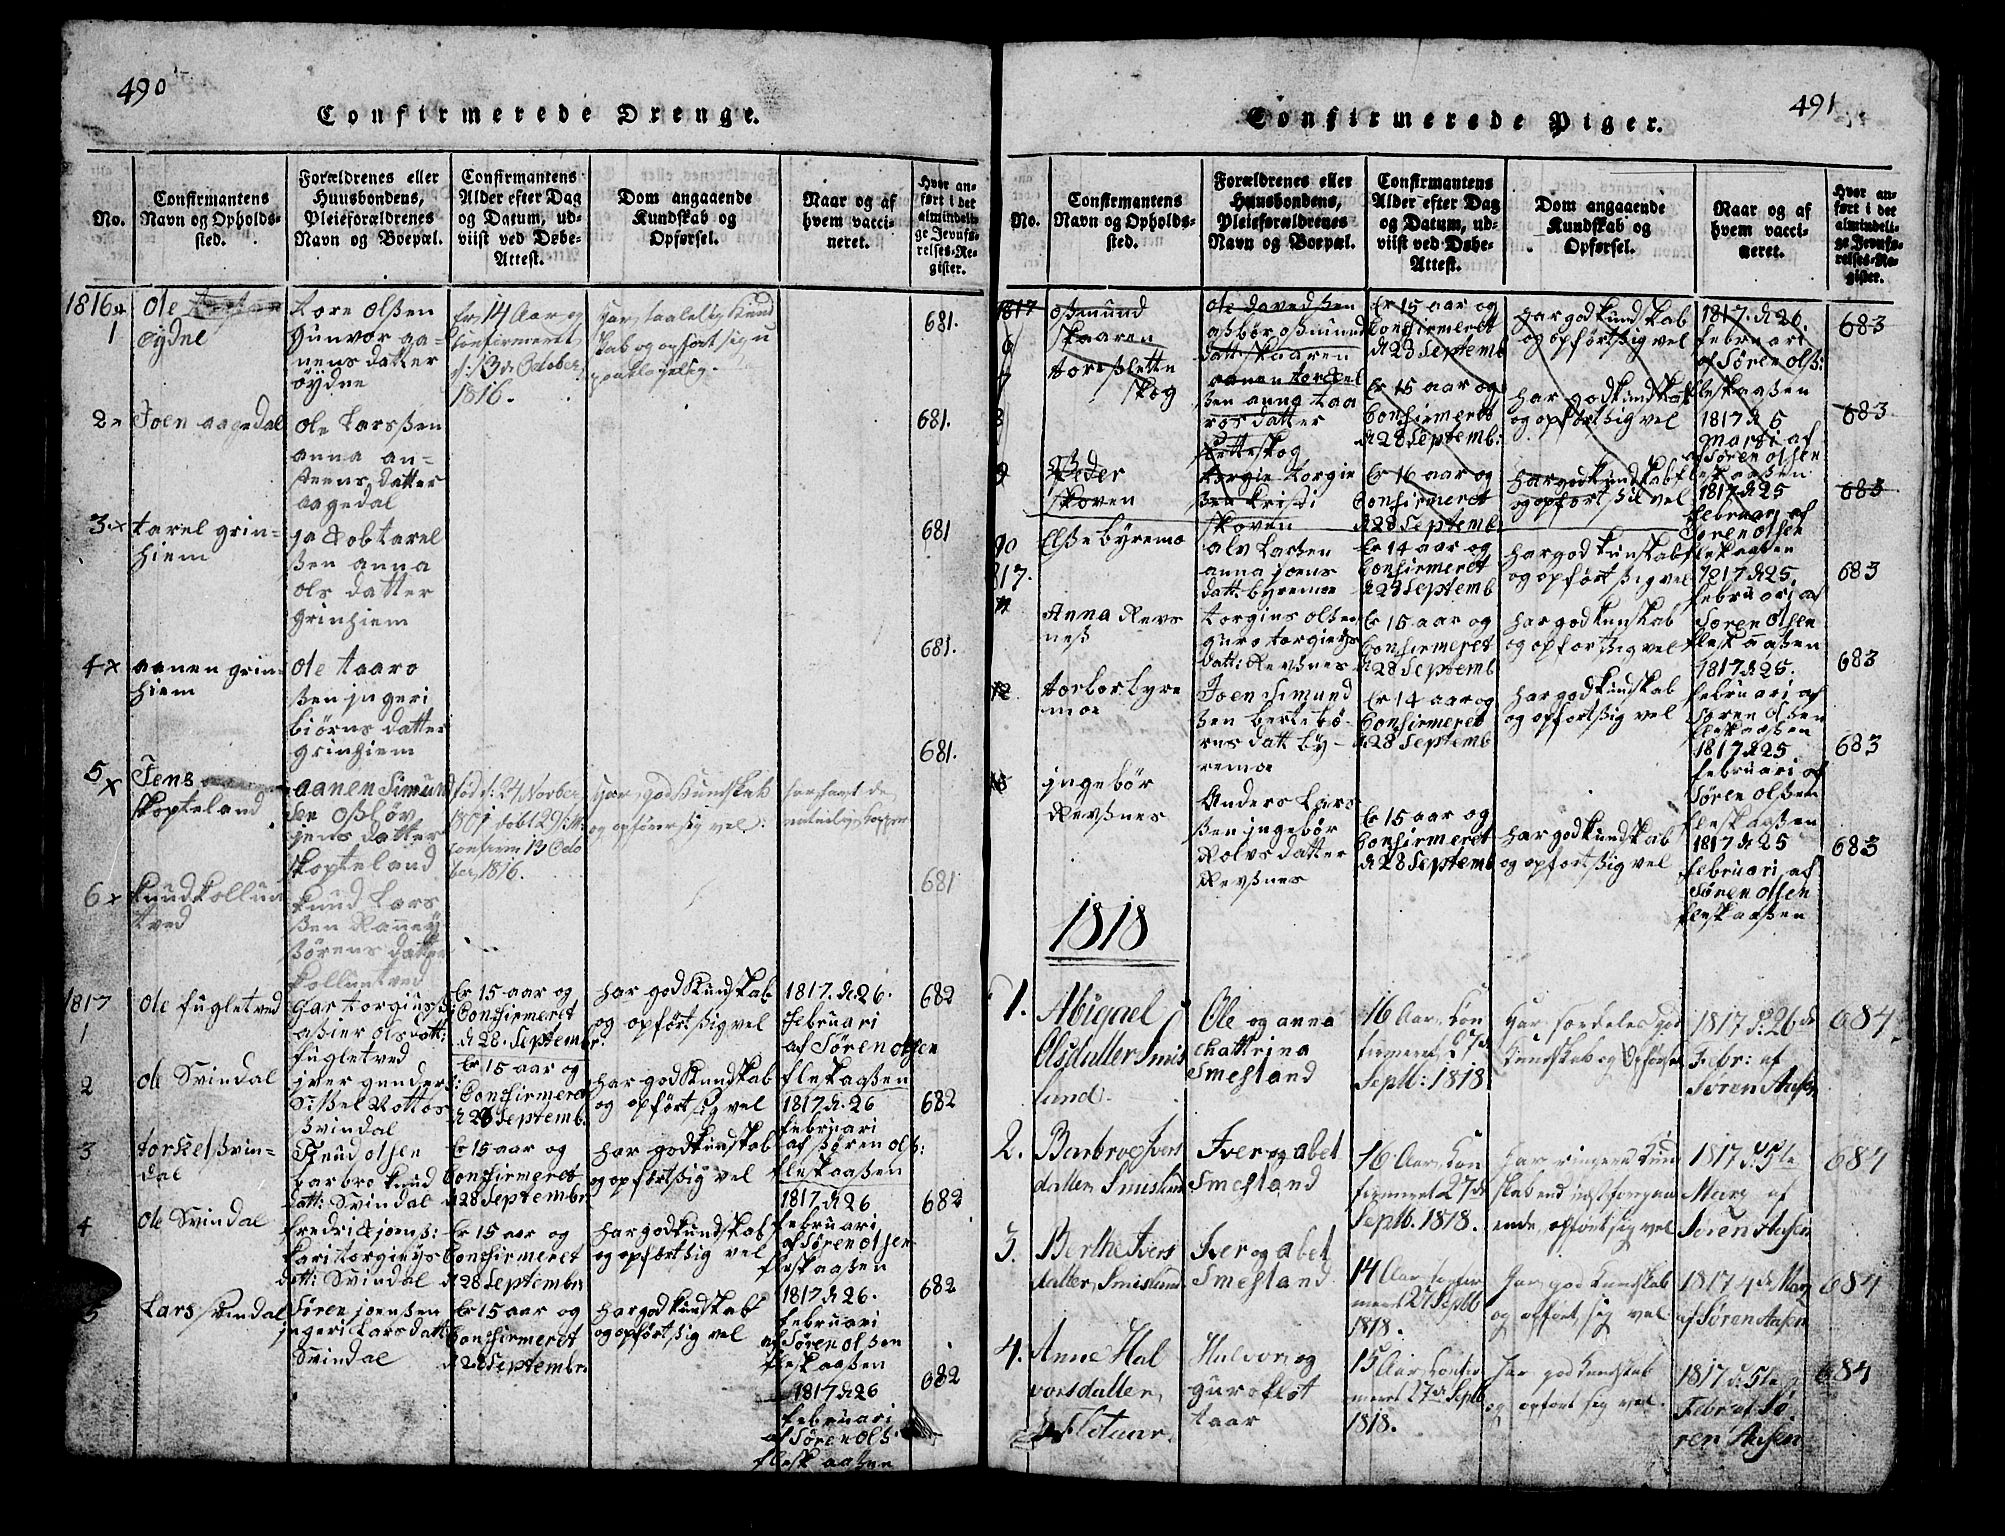 490
Confirmerede Drenge.
No.
Confirmantens
Navn og Opholds-
sted.
Forældrenes eller
Huusbondens,
Pleieforældrenes
Navn og Boepæl.
Confirmantens
Alder efter Dag
og Datum, ud-
viist ved Døbe-
Attest.
Dom angaaende
Kundskab og
Opførsel.
Naar og af
hvem vacci-
neret.
Hvor an-
ført i det
almindeli-
ge Jevnfø-
relses-Re-
gister.
1816
1
Ole
Øydne
tore olßen
gunvor aa-
nens datter
öydne
Er 14 Aar og
Confirmeret
d: 13de October
1816.
har taalelig Kund
skab og opført sig u
paaklagelig.
681.
2
Joen aagedal
ole Larsßen
anna an-
aagedal
681.
3
tarel grin-
hiem
jakob tarel
ßen anna
ols datter
grinhiem
681
4
aanen grin
hiem
ole taaro
ßen jngeri
biørns datter
grinhiem
681.
5
Jens
skopteland
aanen Simund
jens datter
skopteland
1801 døbt 29
Confirm 13 Octo
ber 1816.
Har god Kundskab
og opfører sig vel.
681.
6
knud kollun
tved
knud Lars
ßen Ranney
ßørens datter
kolluntved
681
1817
1
ole fugletved
aßier ols datt:
fugletved
Er 15 aar og
Confirmeret
d 28. Septembr.
har god Kundskab
og opførtßig vel
1817. d. 26.
februari
af Søren olsen
fleskaaßen
682
2
ole Svindal
Svindal
Er 15 aar og
Confirmeret
d 28 Septemb.
har god Kundskab
og opført sig vel
1817 d. 26
februari
af Søren olß:
fleskaaßen
682
3
torkel ßvin-
dal
Knud olsen
barbro knud
datt: Svindal
Er 15 aar og
Confirmeret
d 28 Septembr
har god kundskab
og opførtßig vel
1817 d 26
februari
af Søren olsen
fleskaaßen
682
4
ole Svindal
fredrik joenß:
kari torgieys
datt: Svindal
Er 15 aar og
Confirmeret
d 28 Septembr
har god kundskab
og opførtßig vel
1817 d 26.
februari
af Søren olßen
fleskaaßen
682
5
Lars svindal
Søren joenßen
jngeri Larsdatt
Svindal
Er 15 aar og
Confirmeret
d 28 Septembr.
har god kundskab
og opførtßig vel
1817 d 26
februari
af Søren olß.
flesk aaßen
682
491
Confirmerede Piger.
No.
Confirmantens
Navn og Opholds-
sted.
Forældrenes eller
Huusbondens,
Pleieforældrenes
Navn og Boepæl.
Confirmantens
Alder efter Dag
og Datum, ud-
viist ved Døbe-
Attest.
Dom angaaende
Kundskab og
Opførsel.
Naar og af
hvem vacci-
neret.
Hvor an-
ført i det
almindeli-
ge Jevnfø-
relses-Re-
gister.
1817
6
oßmund
skaaren
ole davedßen
aßbør oßmund
datt skaaren
Er 15 aar og
Confirmeret
d 28 Septemb
har god kundskab
og opførtßig vel
1817. d 26.
februari
af Søren olß:
fleskaaßen
683
7
8
tore ßlette
skog
aanen torkel
ßen anna taa
ros datter
sletteskog
Er 15 aar og
Confirmeret
d 28 Septemb:
har god kundskab
og opførtßig vel
1817 d 5
Marsi af
Søren olsen
fleskaaßen
683
9
Peder
skoven
torgie torgie
ßen kristi
skoven
Er 16 aar og
Confirmeret
d 28 Septemb
har god kundskab
og opført ßil vel
1817 d 25
februari af
Søren olsen
fleskaaßen
683
10
817.
Elße byremo
alv Larßen
anna joens
datt. byremoe
Er 14 aar og
Confirmeret
d 28 Septemb
har god kunskab
og opført ßig vel
1817 d 25.
februari af
Søren olsen
fleskaaßen
683
11
Anna Revs
neß
torgius olßen
guro torgieys
datt: Revßnes
Er 15 aar og
Confirmeret
d 28 Septemb
har god kunskab
og opførtßig vel
1817 d 25.
februari af
Søren olßen
fleskaaßen
683
12
torbor byre
moe
Joen Simund
ßen berte bö-
rns datt by-
remoe
Er 14 aar og
Confirmeret
d 28 Septemb
har god kundskab
og opførtßig vel
1817 d 25
februari af
Søren olßen
fleskaaßen
683
13
jngebör
Revßnes
Anders Lars
ßen jngebör
Rolvs datter
Revßnes
Er 15 aar og
Confirmeret
d 28 Septemb
har god kundskab
og opførtßig vel
1817 d 25
februari af
Søren olsen
fleskaaßen
683
1818
1.
Abigael
Olsdatter Smis
land.
Ole og anna
chattrina
Smesland
16 Aar, Con
firmeret 27de
Septb: 1818.
Har særdeles god
Kundskab og Opførsel
1817 d: 26de
Febr: af
Søren Aasen
684
2.
Barbroe Ivers
datter Smisland
Iver og abet
Smesland
16 Aar, Con
firmeret 27de
Septb. 1818.
Har ringere Kund
skab end
ende, opført sig vel
1817 d. 5te
Marz af
Søren Aasen
684
3.
Berthe Ivers
datter, Smisland
Iver og abet
Smesland
14 Aar, confir
meret 27 Septb
1818.
Har god Kundskab
og opført sig vel.
1817 4de Marz
af Søren Aasen
684
4.
Anne Hal
vorsdatter,
Fletaar.
Halvor og
guro flot
taar
15 Aar, Confir
meret 27de Septb
1818.
Har god Kundskab
og opført sig vel.
1817 d. 5te
Febr af Sø
ren Aasen
684